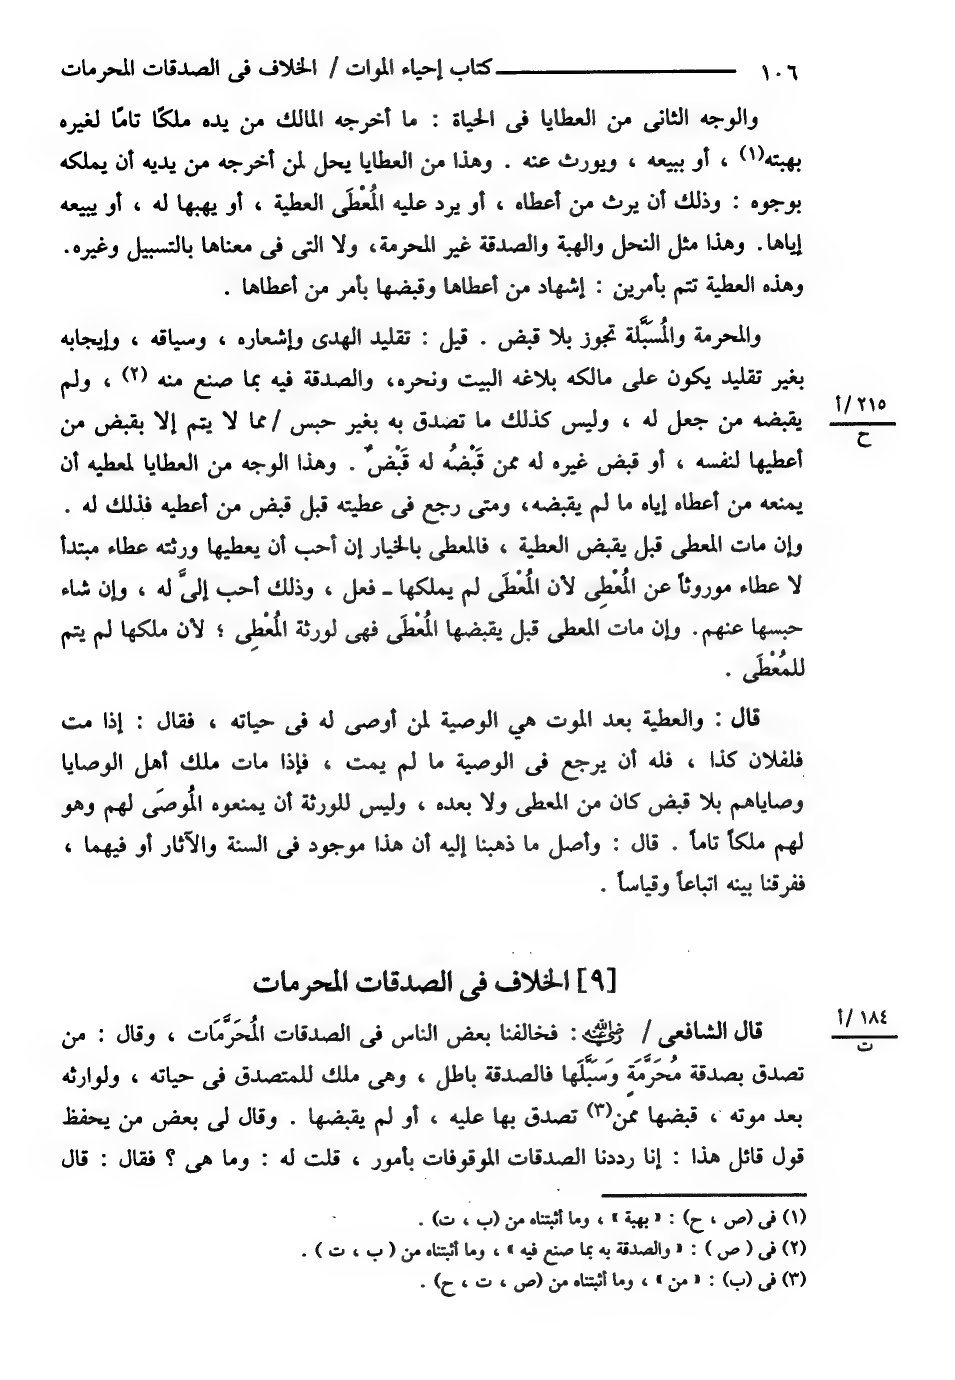 ١٠٦ كتاب إحياء الموات / الخلاف فى الصدقات المحرمات
والوجه الثانى من العطايا فى الحياة : ما أخرجه المالك من يده ملكًا تامًا لغيره
بهبته(١) ، أو ببيعه ، ويورث عنه . وهذا من العطايا يحل لمن أخرجه من يديه أن يملكه
بوجوه : وذلك أن يرث من أعطاه ، أو يرد عليه المُعْطَى العطية ، أو يهبها له ، أو يبيعه
إياها. وهذا مثل النحل والهبة والصدقة غير المحرمة، ولا التى فى معناها بالتسبيل وغيره.
وهذه العطية تتم بأمرين : إشهاد من أعطاها وقبضها بأمر من أعطاها .
والمحرمة والمُسَبَّلة تجوز بلا قبض . قيل : تقليد الهدى وإشعاره ، وسياقه ، وإيجابه
بغير تقليد يكون على مالكه بلاغه البيت ونحره، والصدقة فيه بما صنع منه (٢) ، ولم
٢١٥/ أ
ح
يقبضه من جعل له ، وليس كذلك ما تصدق به بغير حبس /مما لا يتم إلا بقبض من
أعطيها لنفسه ، أو قبض غيره له ممن قَبْضُه له قَبْضٌ . وهذا الوجه من العطايا لمعطيه أن
يمنعه من أعطاه إياه ما لم يقبضه، ومتى رجع فى عطيته قبل قبض من أعطيه فذلك له .
وإن مات المعطى قبل يقبض العطية ، فالمعطى بالخيار إن أحب أن يعطيها ورثته عطاء مبتدأ
لا عطاء موروثاً عن المُعْطِى لأن المُعْطَى لم يملكها ـ فعل ، وذلك أحب إلىَّ له ، وإن شاء
حبسها عنهم. وإن مات المعطى قبل يقبضها المُعْطَى فهى لورثة المُعْطِى ؛ لأن ملكها لم يتم
للمُعْطَى .
قال : والعطية بعد الموت هي الوصية لمن أوصى له فى حياته ، فقال : إذا مت
فلفلان كذا ، فله أن يرجع فى الوصية ما لم يمت ، فإذا مات ملك أهل الوصايا
وصاياهم بلا قبض كان من المعطى ولا بعده ، وليس للورثة أن يمنعوه المُوصَى لهم وهو
لهم ملكاً تاماً . قال : وأصل ما ذهبنا إليه أن هذا موجود فى السنة والآثار أو فيهما ،
ففرقنا بينه اتباعاً وقياساً .
[٩] الخلاف فى الصدقات المحرمات
١٨٤/ أ
ت
قال الشافعى / رضي الله عنه : فخالفنا بعض الناس فى الصدقات المُحَرَّمَات ، وقال : من
تصدق بصدقة مُحَرَّمَةٍ وَسَبَّلَها فالصدقة باطل ، وهى ملك للمتصدق فى حياته ، ولوارثه
بعد موته ، قبضها ممن(٣) تصدق بها عليه ، أو لم يقبضها . وقال لى بعض من يحفظ
قول قائل هذا : إنا رددنا الصدقات الموقوفات بأمور ، قلت له : وما هى ؟ فقال : قال
(١) فى (ص ، ح) : « بهبة » ، وما أثبتناه من (ب ، ت) .
(٢) فى ( ص ) : « والصدقة به بما صنع فيه » ، وما أثبتناه من ( ب ، ت ) .
(٣) فى (ب) : « من » ، وما أثبتناه من (ص ، ت ، ح) .